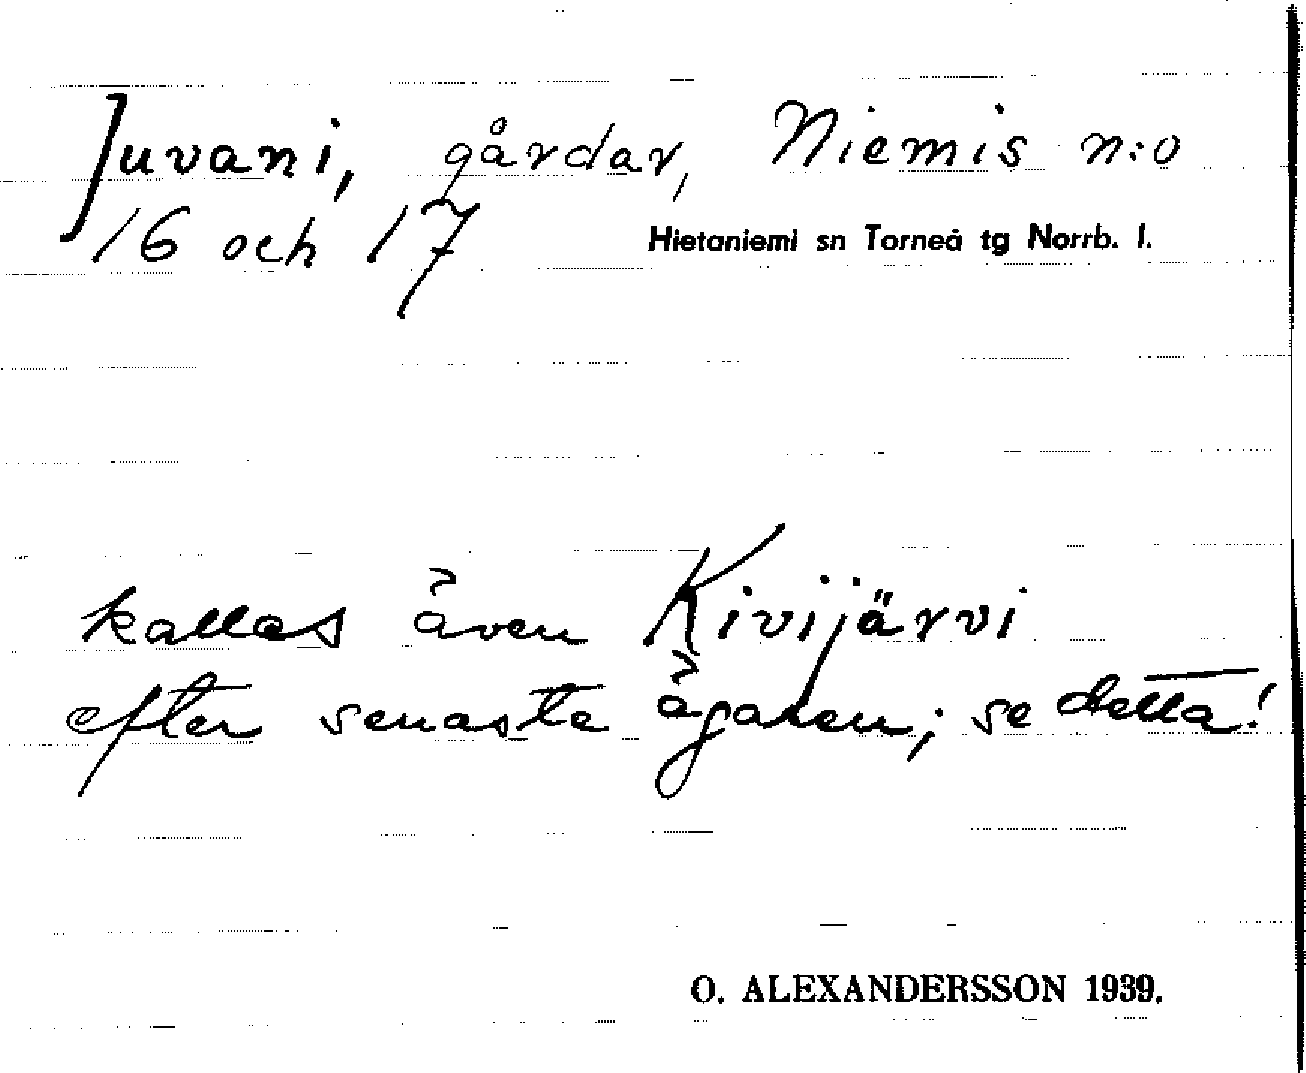 Juvani, gårdar, Niemis n:o
16 och 17 Hietaniemi sn Torneå tg Norrb. l.
kallas även Kivijärvi
efter senaste ägaren; se detta!
O. ALEXANDERSSON 1939.